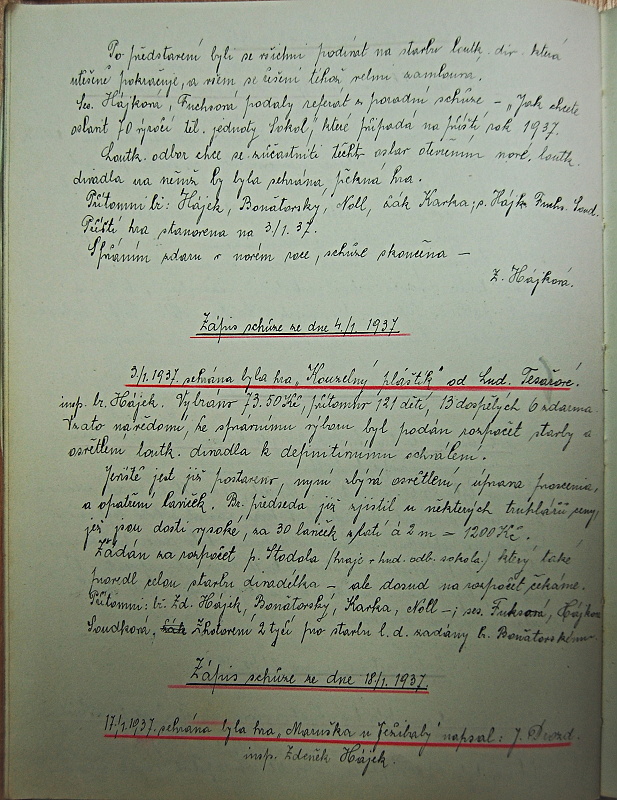 Po představení byli se všichni podívat na stavbu loutk. div. která
utěšeně pokračuje, a všem se řešení téhož velmi zamlouvá.
Ses. Hájková, Fuchsová podaly referát z poradní schůze – „Jak chcete
oslavit 70 výročí těl. jednoty Sokol“, které připadá na příští rok 1937.
Loutk. odbor chce se zúčastniti těchto oslav otevřením nové, loutk.
divadla na němž by byla sehrána pěkná hra.
Přítomni bři: Hájek, Boňatovský, Noll, žák Karka; s. Hájk. Fuchs. Soud.
Příští hra stanovena na 3/1. 37.
S přáním zdaru v novém roce, schůze skončena –
Z. Hájková.
Zápis schůze ze dne 4/1. 1937.
3/1. 1937. sehrána byla hra „Kouzelný pláštík“ od Lud. Tesařové.
insp. br. Hájek. Vybráno 73.50 Kč, přítomno 121 dětí, 13 dospělých 6 zdarma.
Vzato na vědomí, že správnímu výboru byl podán rozpočet stavby a
osvětlení loutk. divadla k definitivnímu schválení.
Jeviště jest již postaveno, nyní zbývá osvětlení, úprava proscenia,
a opatření laviček. Br. předseda již zjistil u některých truhlářů ceny,
jež jsou dosti vysoké, za 30 laviček zlatí á 2 m = 1200 Kč.
Žádán za rozpočet p. Stodola (hraje v hud. odb. sokola) který také
provedl celou stavbu divadélka – ale dosud na rozpočet čekáme.
Přítomni: bři. Zd. Hájek, Boňatovský, Karka, Noll –; ses. Fuksová, Hájková
Soudková, Zhotovení 2 tyčí pro stavbu l. d. zadány br. Boňatovskému.
Zápis schůze ze dne 18/1. 1937.
17./1. 1937. sehrána byla hra „Maruška u Ježibaby“ napsal: J. Drozd.
insp. Zdeněk Hájek.